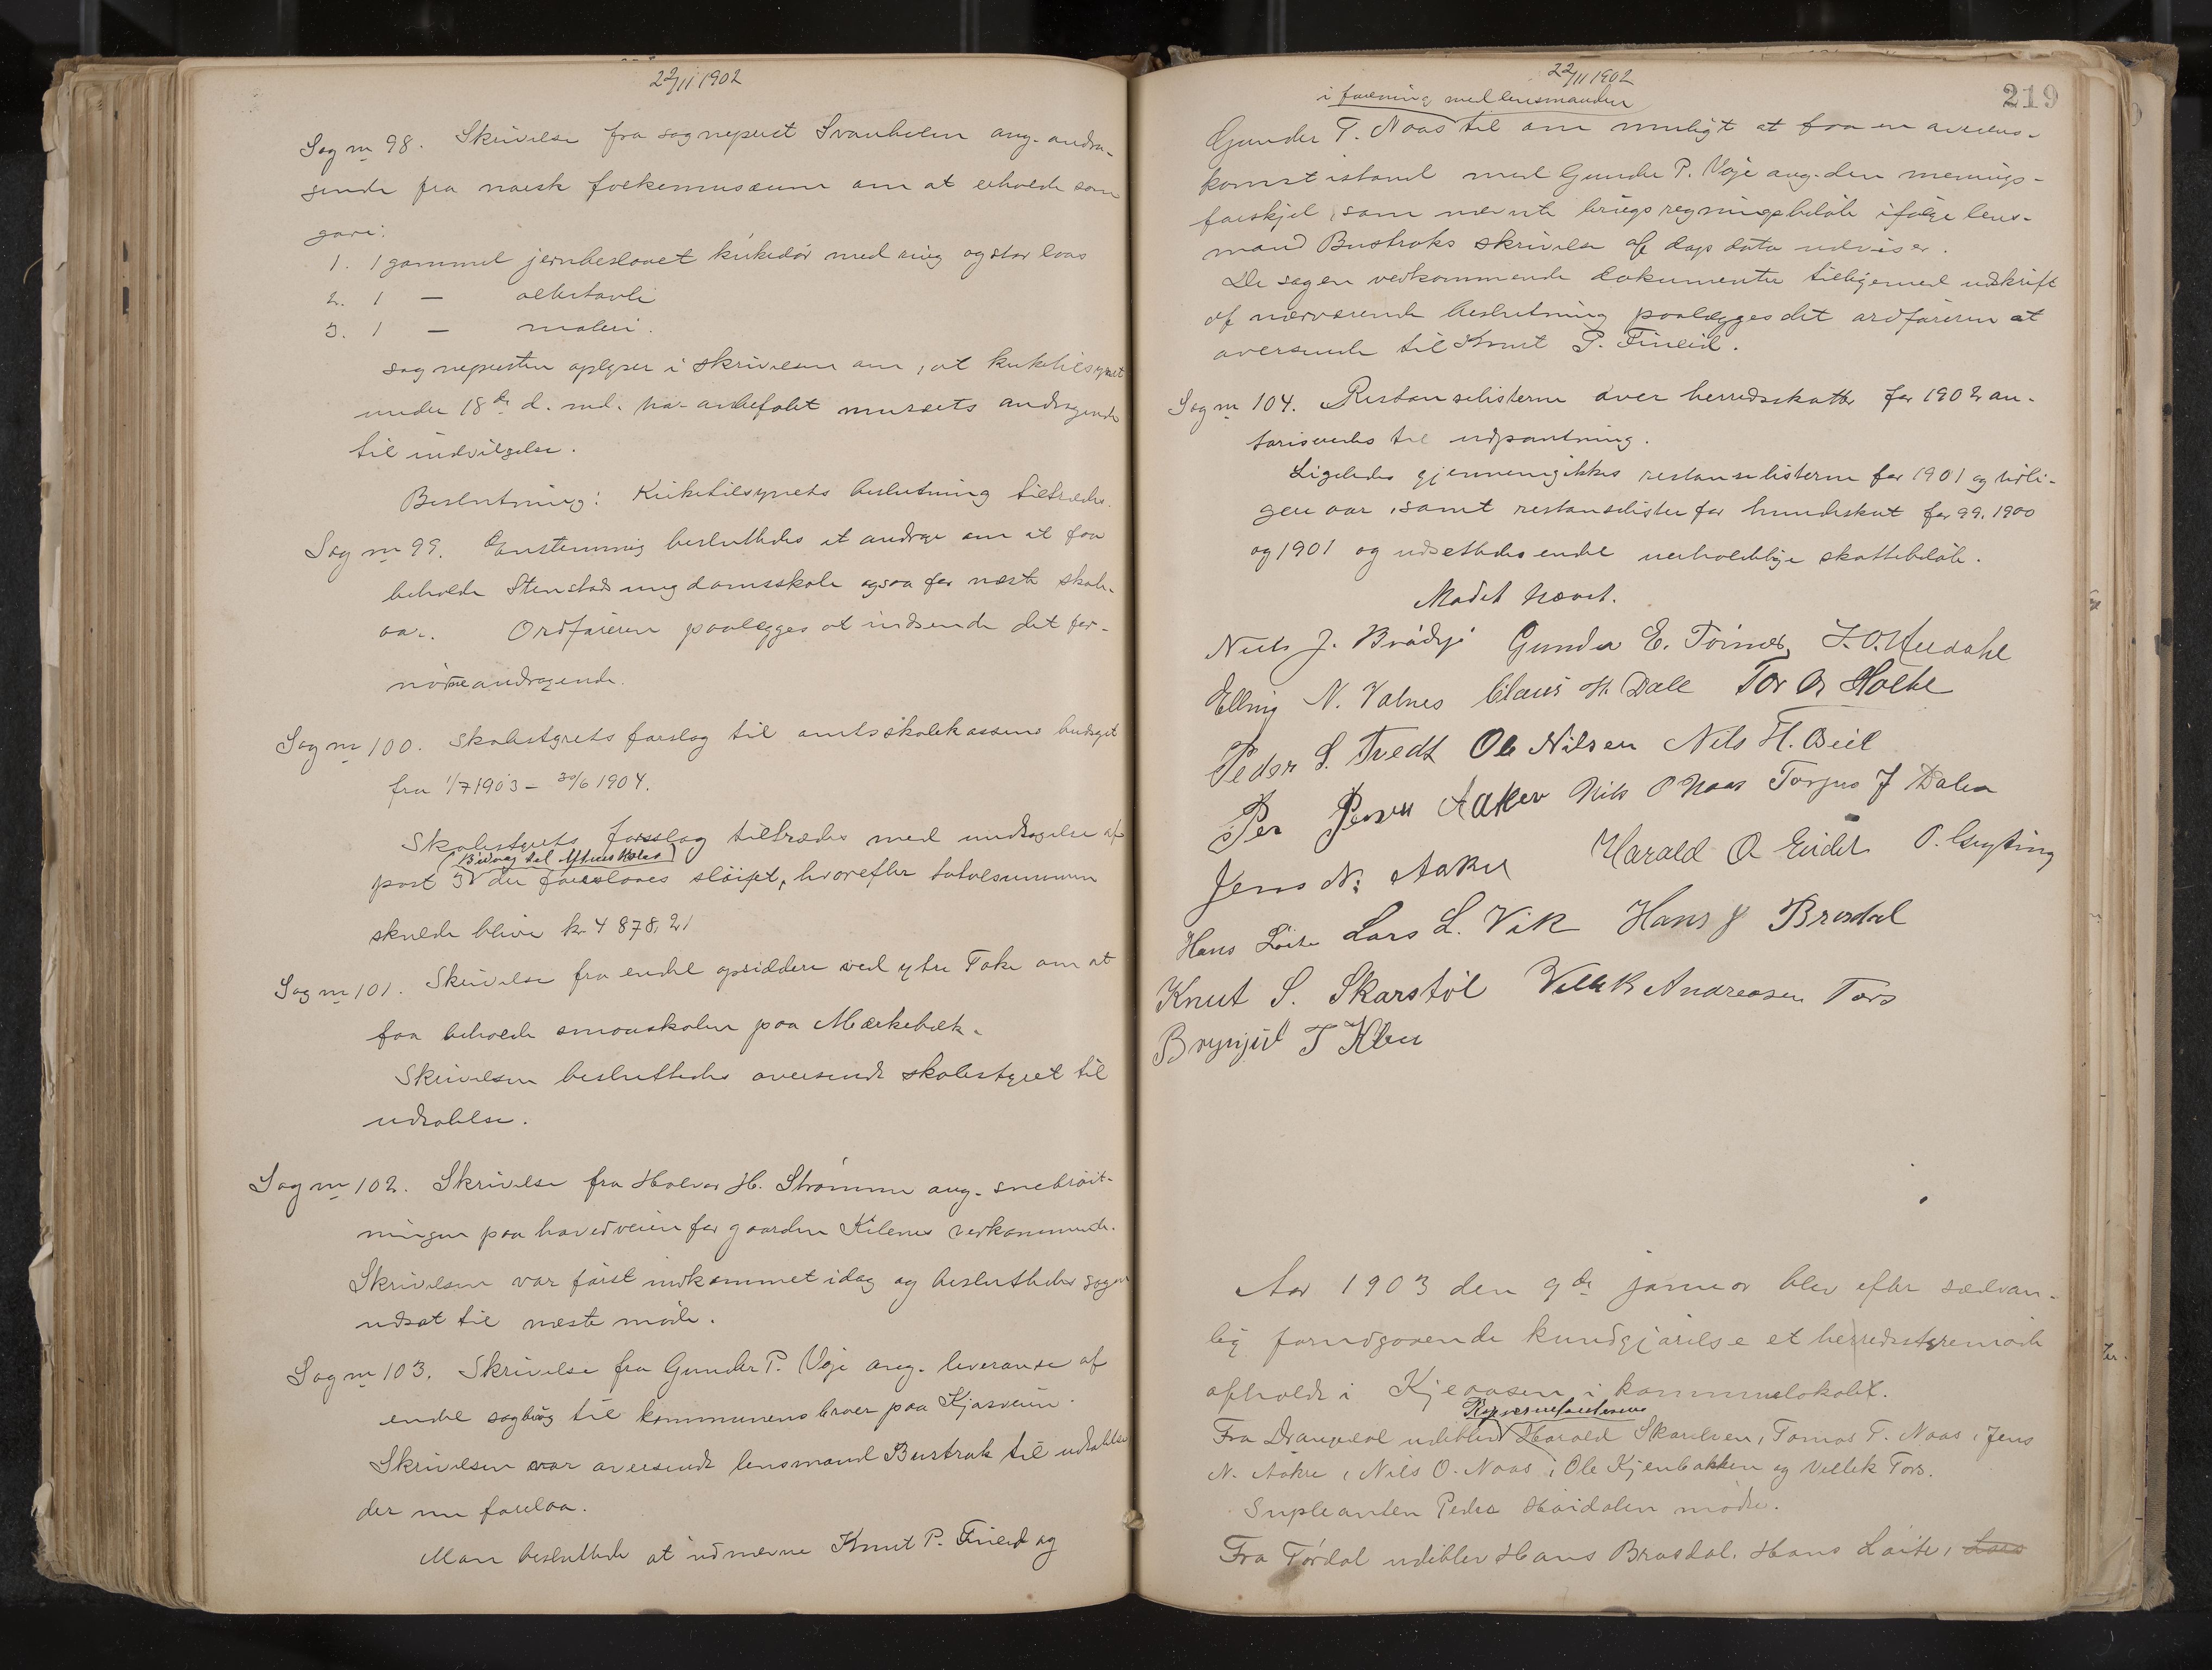 22/11 1902
Sag no 98. Skrivelse fra sogneprest Svanholm ang. andra-
gende fra norsk folkemusæum om at erholde som
gave:
1. 1 gammel jernbeslaaet kirkedør med ring og stor laas
2. 1 — altertavle
3. 1 — maleri.
sognepresten oplyser i skrivelsen om, at kirketilsynet
under 18de d. md. har anbefalet musæets andragende
til indvilgelse.
Beslutning: Kirketilsynets beslutning tiltrædes.
Sag no 99. Enstemmig besluttedes at andrage om at faa
beholde Stenstads ungdomsskole ogsaa for næste skole-
aar. Ordføreren paalægges at indsende det for-
nødne andragende.
Sag no 100. Skolestyrets forslag til amtsskolekassens budget
fra 1/7 1903 – 30/6 1904.
Skolestyrets forslag tiltrædes med undtagelse af
(Bidrag til Aftenskoler)
post 3 der foreslaaes sløifet, hvorefter totalsummen
skulde blive kr. 4878,21
Sag no 101. Skrivelse fra endel opsiddere ved ytre Toke om at
faa beholde smaaskolen paa Mærkebæk.
Skrivelsen besluttedes oversendt skolestyret til
udtalelse.
Sag no 102. Skrivelse fra Halvor H. Strømme ang. snebrøit-
ningen paa hovedveien for gaarden Kilenes vedkommende.
Skrivelsen var først indkommet idag og besluttedes sagen
udsat til næste møde.
Sag no 103. Skrivelse fra Gunder P. Voje ang. leveranse af
endel sagbrug til kommunens broer paa Kjøsveien.
Skrivelsen var oversendt lensmand Bustrak til udtalelse
der nu forelaa.
Man besluttede at udnævne Knut P. Fineid og
22/11 1902
219
i forening med lensmanden
Gunder T. Naas til om muligt at faa en overens-
komst istand med Gunder P. Voje ang. den menings-
forskjel, som nævnte brugs regningsbeløb ifølge lens-
mand Bustraks skrivelse af dags dato udviser.
De sagen vedkommende dokumenter tilligemed udskrift
af nærværende beslutning paalægges det ordføreren at
oversende til Knut P. Fineid.
Sag no 104. Restanselisterne over herredsskatter for 1902 au-
toriseredes til udpantning.
Ligeledes gjennemgikkes restanselisterne for 1901 og tidli-
gere aar, samt restanselister for hundeskat for 99, 1900
og 1901 og udsattedes endel uerholdelige skattebeløb.
Mødet hævet.
Niels J. Brødsjø Gunder E. Tørnes J. O. Neerdahl
Elling N. Valnes Claus H. Dale Tor O Holte
Peder S. Tvedt Ole Nilsen Nils H. Beil
Per Persen Aakev Nils O Naas Torgus J Dalen
Jens N. Aakre Harald O Eidet O. Gryting
Hans Løite Lars L. Vik Hans J Brødal
Knut S. Skarstøl Vellek Andreasen Tors
Brynjul T Kleu
Aar 1903 den 9de januar blev efter sædvan-
lig forudgaaende kundgjørelse et herredsstyremøde
afholdt i Kjeaasen i kommunelokalet.
Representanterne
Fra Drangedal udeblev Harald Skarelven, Tomas T. Naas, Jens
N. Aakre, Nils O. Naas, Ole Kjenbakken og Vellek Tors.
Supleanten Peder Høidalen mødte.
Fra Tørdal udeblev Hans Brødal, Hans Løite, Lars